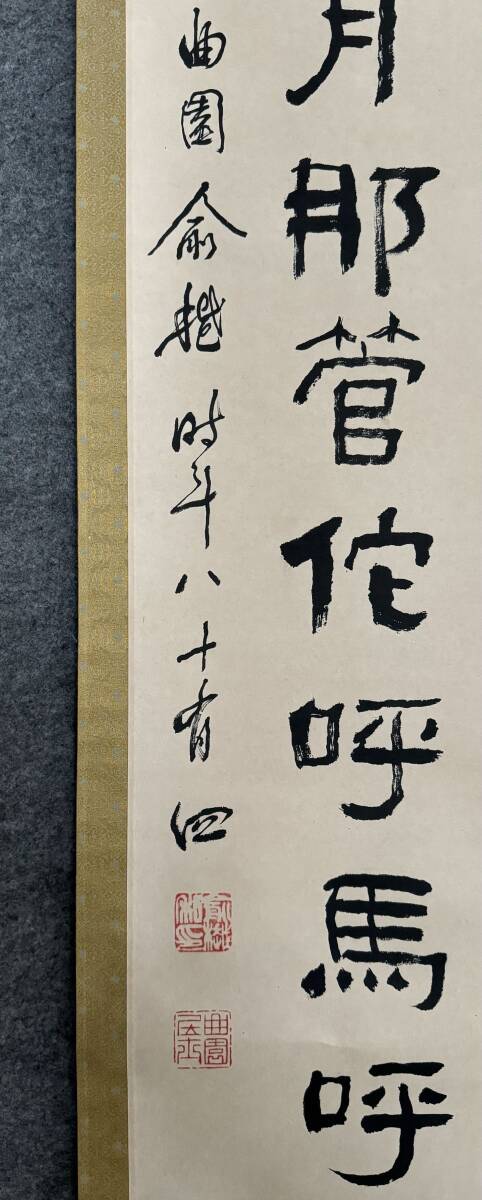 月那管佗呼馬呼
曲園俞樾時年八十有四
俞樾私印
曲園居士